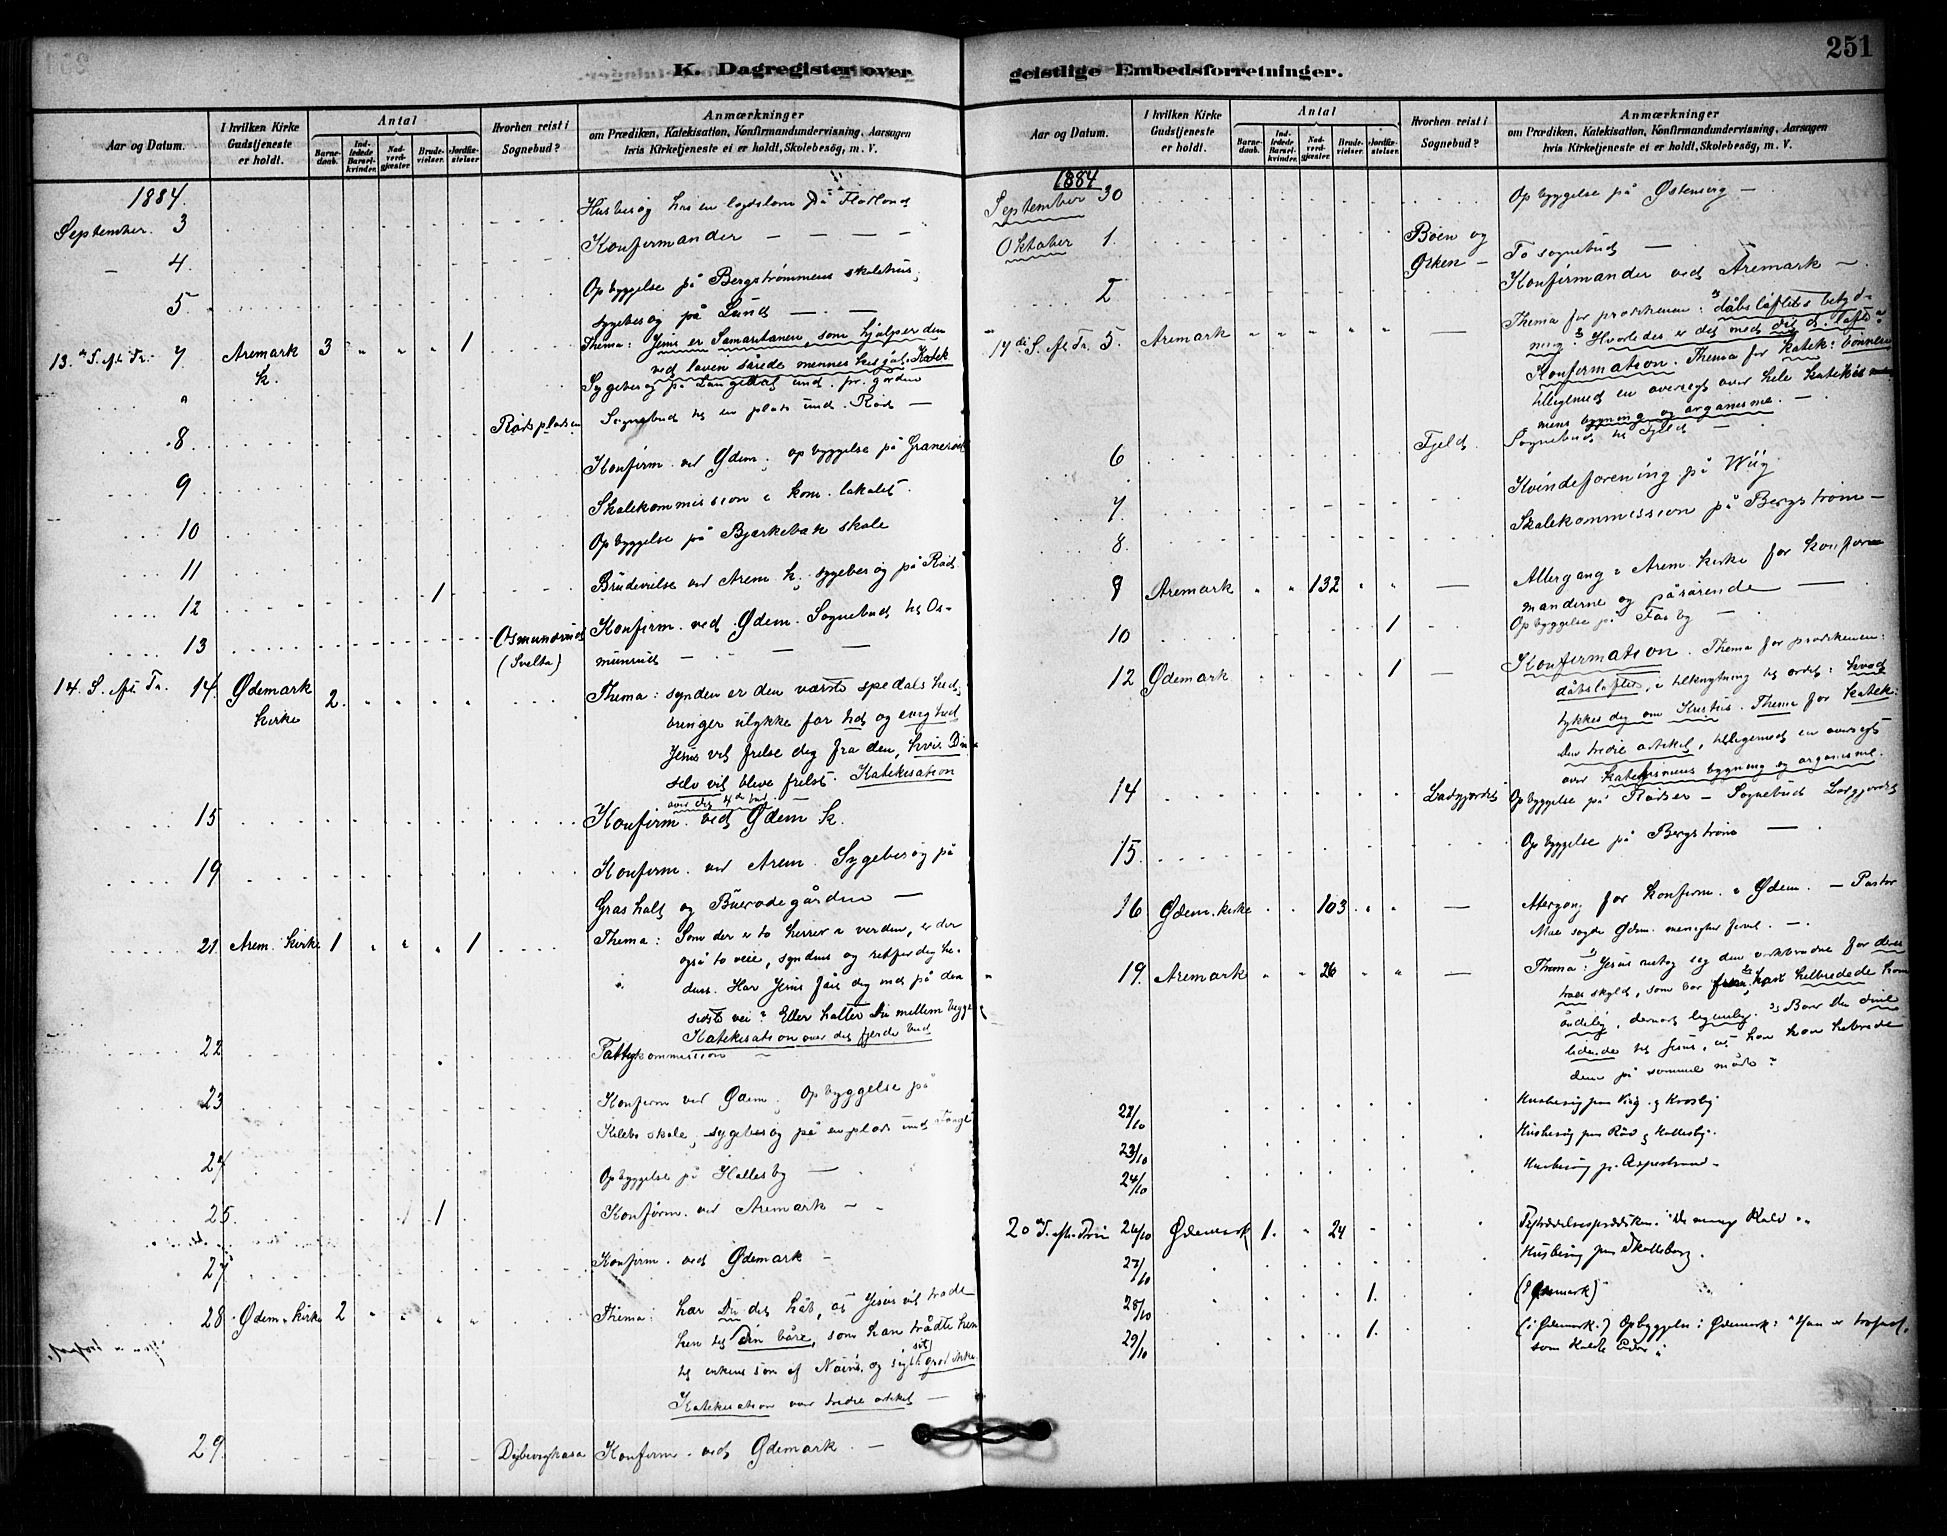 251
K. Dagregister over
geistlige Embedsforretninger.
Aar og Datum.
I hvilken Kirke Gudstjeneste er holdt.
Antal
Barnedaab.
Indledede Barselkvinder.
Nadverdgjæster.
Brudevielser.
Jordfæstelser
Hvorhen reist i Sognebud?
Anmærkninger
om Prædiken, Katekisation, Konfirmandundervisning, Aarsagen
hvis Kirketjeneste ei er holdt, Skolebesög, m. V.
1884.
Husbesøg hos en
September 3
Konfirmander
4
Opbyggelse på Bergstrømmens skolehus
5
Sygebesøg på Lund
13. S. eft. Tr. 7 Aremark k. 3 " " " 1 Thema: Jesus er Samaritanen, som hjælper den
ved loven sårede menneskesjæl. Katek
Sygebesøg på Langetvet und. pr. gården
8 Rødspladsen Sognebud til en plads und. Rød
Konfirm. ved Ødem., opbyggelse på Granerød
9
Skolekommission i kom. lokalet.
10
Opbyggelse på Bjørkebæk skole
11
Brudevielse ved Arem. k., sygebesøg på Rød
12 1
Konfirm. ved Ødem. Sognebud til Os-
13 Osmundrud
(Svelta) munrud
14. S. eft. Tr. 14. Ødemark Kirke 2 " " " " Thema: synden er den værste spedalskhed,
bringer ulykke for tid og evighed
Jesus vil frelse dig fra den, hvis Du
selv vil blive frelst. Katekisation
over det 4de bud.
15 Konfirm. ved Ødem. k.
19 Konfirm. ved Arem. Sygebesøg på
Grasholt og Buerødegården
21 Arem. kirke 1 " " " 1 Thema: Som der er to herrer i verden, er der
også to veie, syndens og retfærdighe-
dens. Har Jesus fået dig ind på den
sidste vei? Eller halter Du mellem begge
Katekisation over det fjerde bud
22 Fattigkommission
23 Konfirm ved Ødem., Opbyggelse på
Kilebu skole, sygebesøg på en plads und
24 Opbyggelse på Hallesby
25. 1 Konfirm. ved Aremark
27 Konfirm. ved Ødemark
28 Ødem. kirke 2 " " " " Thema: har Du det håb, at Jesus vil træde
hen til Din båre, som han trådte hen
til enkens søn af Nain's, og sige: græd ikke
Katekisation over tredie artikel
29 Konfirm. ved Ødemark
Aar og Datum.
I hvilken Kirke Gudstjeneste er holdt.
Antal
Barnedaab.
Indledede Barselkvinder.
Nadverdgjæster.
Brudevielser.
Jordfæstelser.
Hvorhen reist i Sognebud?
Anmærkninger
om Prædiken, Katekisation, Konfirmandundervisning, Aarsagen
hvis Kirketjeneste ei er holdt, Skolebesög, m. V.
1884
September 30 Opbyggelse på Østensvig
Oktober 1. Bøen og
Ørken To sognebud
2 Konfirmander ved Aremark
17de S. eft. Tr. 5. Aremark " " " " " Thema for prædikenen: dåbsløftets betyd-
ning. Hvorledes er det med dit d. løfte?
Konfirmation. Thema for katek: bønnen
tilligemed en oversigt over hele katekis
mens bygning og organisme.
6 Fjeld. Sognebud til Fjeld
7 Kvindeforening på Wiig
8. Skolekommission på Bergstrøm
8 Aremark " " 132 " " Altergang i Arem. kirke for konfir-
manderne og pårørende
10 1 Opbyggelse på Fosby
12 Ødemark 1 Konfirmation. Thema for prædikenen:
dåbsløftet, i tilknytning til ordet: hvad
tykkes dig om Kristus. Thema for Katek:
Den tredie artikel, tilligemed en oversigt
over katekismens bygning og organisme.
14 Opbyggelse på Rødser - Sognebud
15 Opbyggelse på Bergstrøm
16 Ødem. kirke 103 " " Altergang for konfirm. i Ødem. - Pastor
Moe sagde Ødem. menighed farvel.
19. Aremark " " 26 " " Thema: Jesus antog sig den værkbrudne for deres
troes skyld, som bar ham, han helbredede ham
åndelig, dernæst legemlig. Bær Du dine
lidende til Jesus, at han kan helbrede
dem på samme måde?
22/10 Husbesøg paa Viig og Krosby
23/10 Husbesøg paa Rød og Hallesby.
24/10 Husbesøg p. Aspestrand
20 S. eft. Trin 26/10 Ødemark 1. " 24 " Tiltrædelsesprædiken.
27/10 Husbesøg paa Skolleborg.
28/10 1. (i Ødemark)
29/10 1. (i Ødemark.) Opbyggelse i Ødemark: "Han er trofast,
som kaldte Eder"